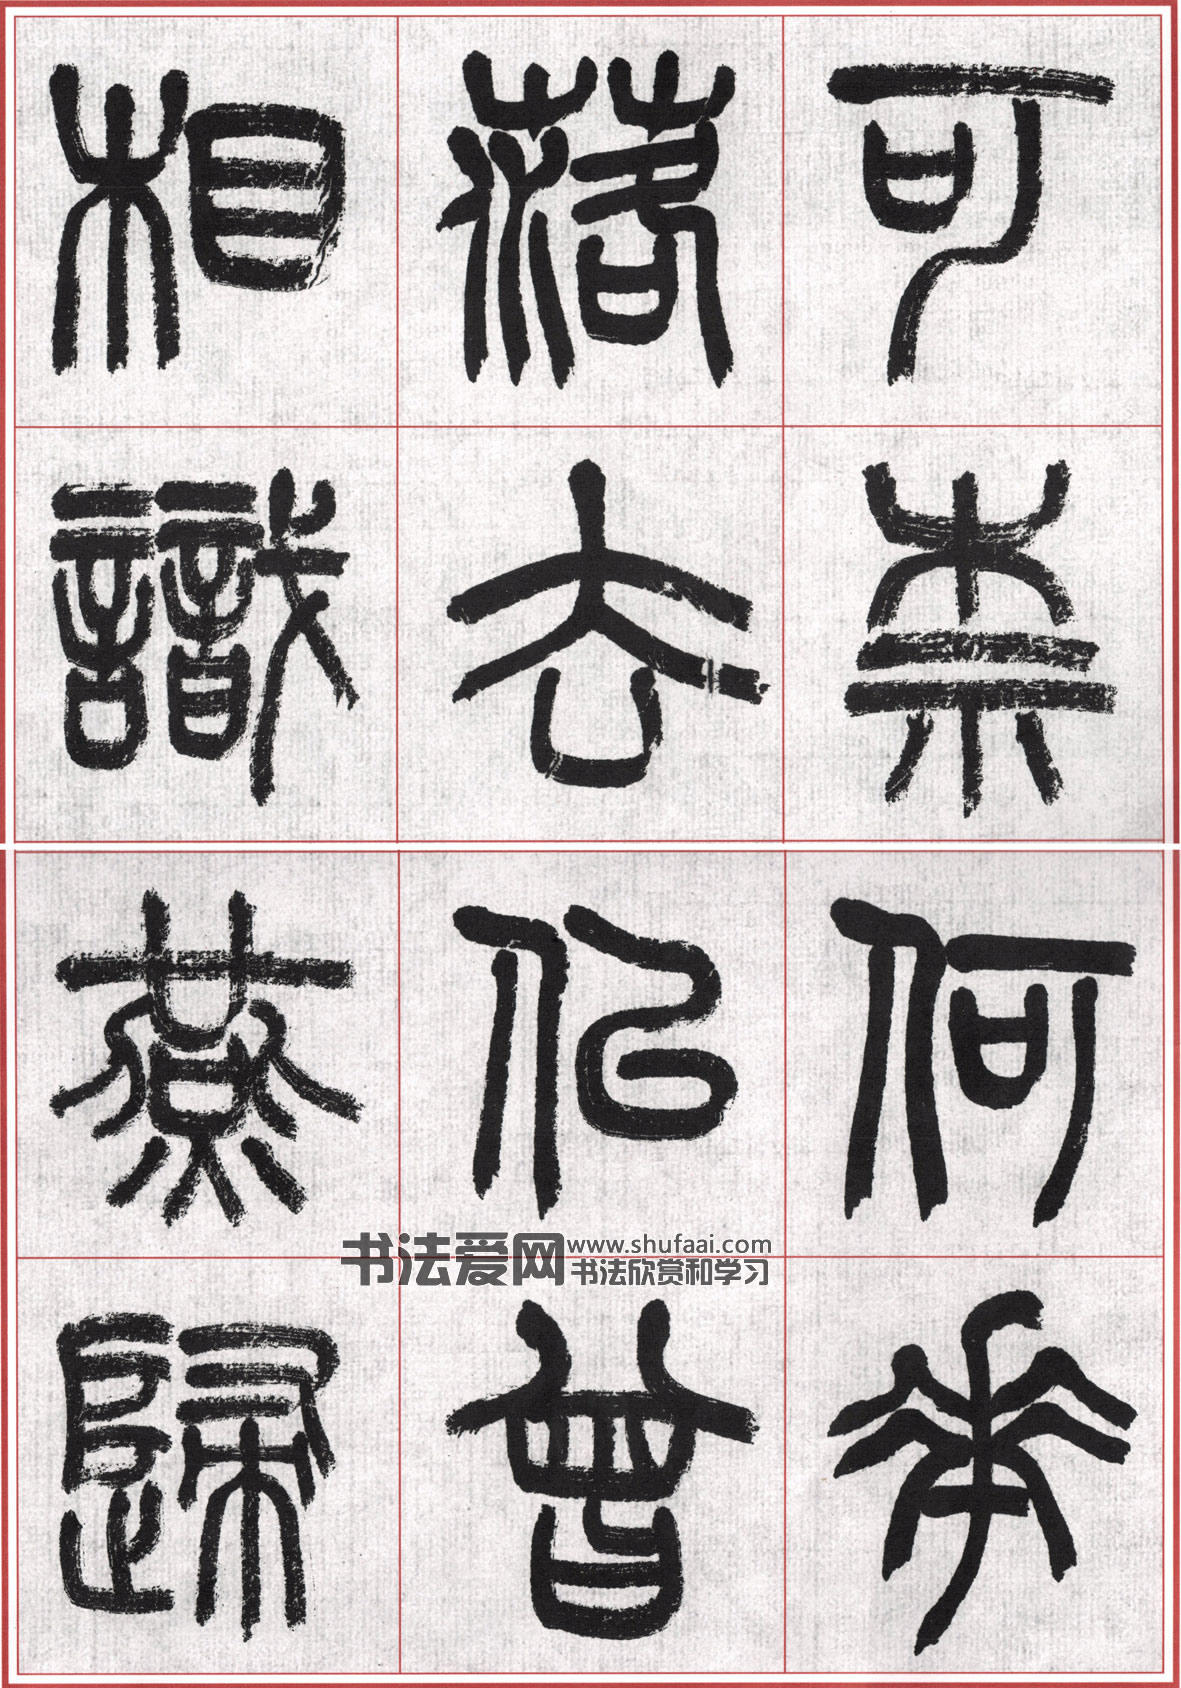 可柰何華
落去似曾
相識燕歸
书法爱网
www.shufaai.com
书法欣赏和学习